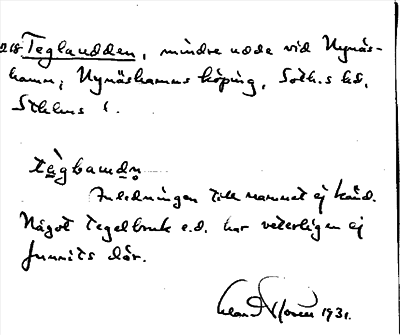 Tegludden, mindre udde vid Nynäs-
hamn, Nynäshamns köping, Soth.s hd,
Sthlms l.
Inledningen till namnet ej känd.
Något tegelbruk e.d. har veterligen ej
funnits där.
1931.